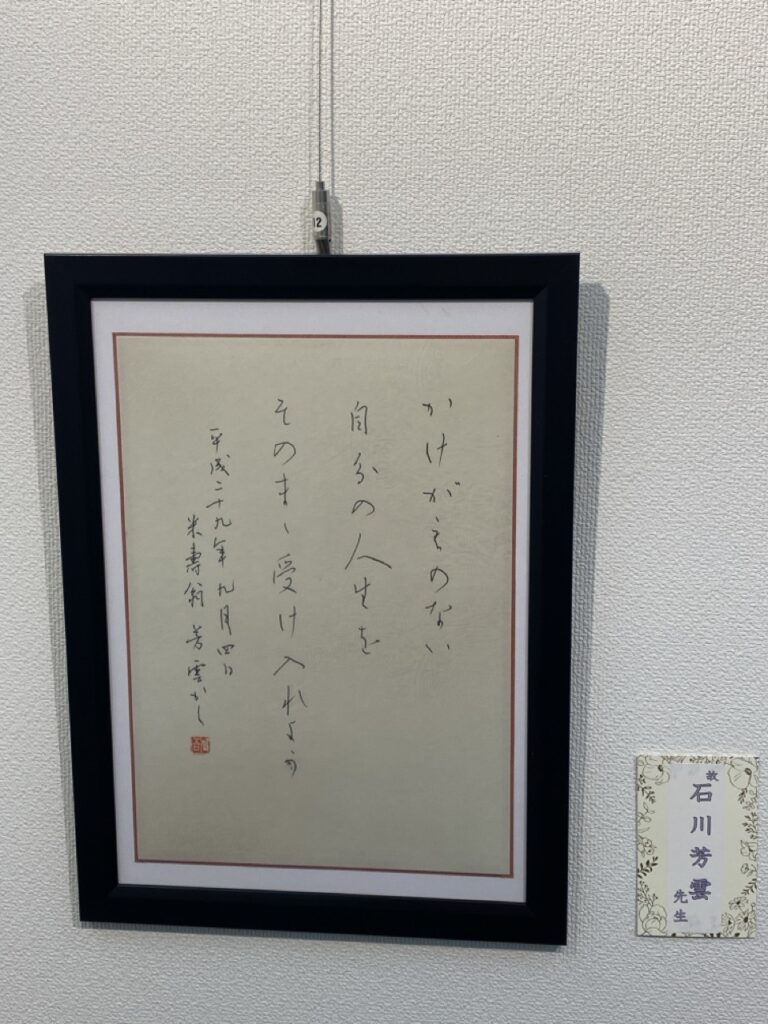 かけがえのない
自分の人生を
そのまゝ受け入れよう
平成二十九年九月四日
米壽翁 芳雲かく
12
故
石川芳雲
先生